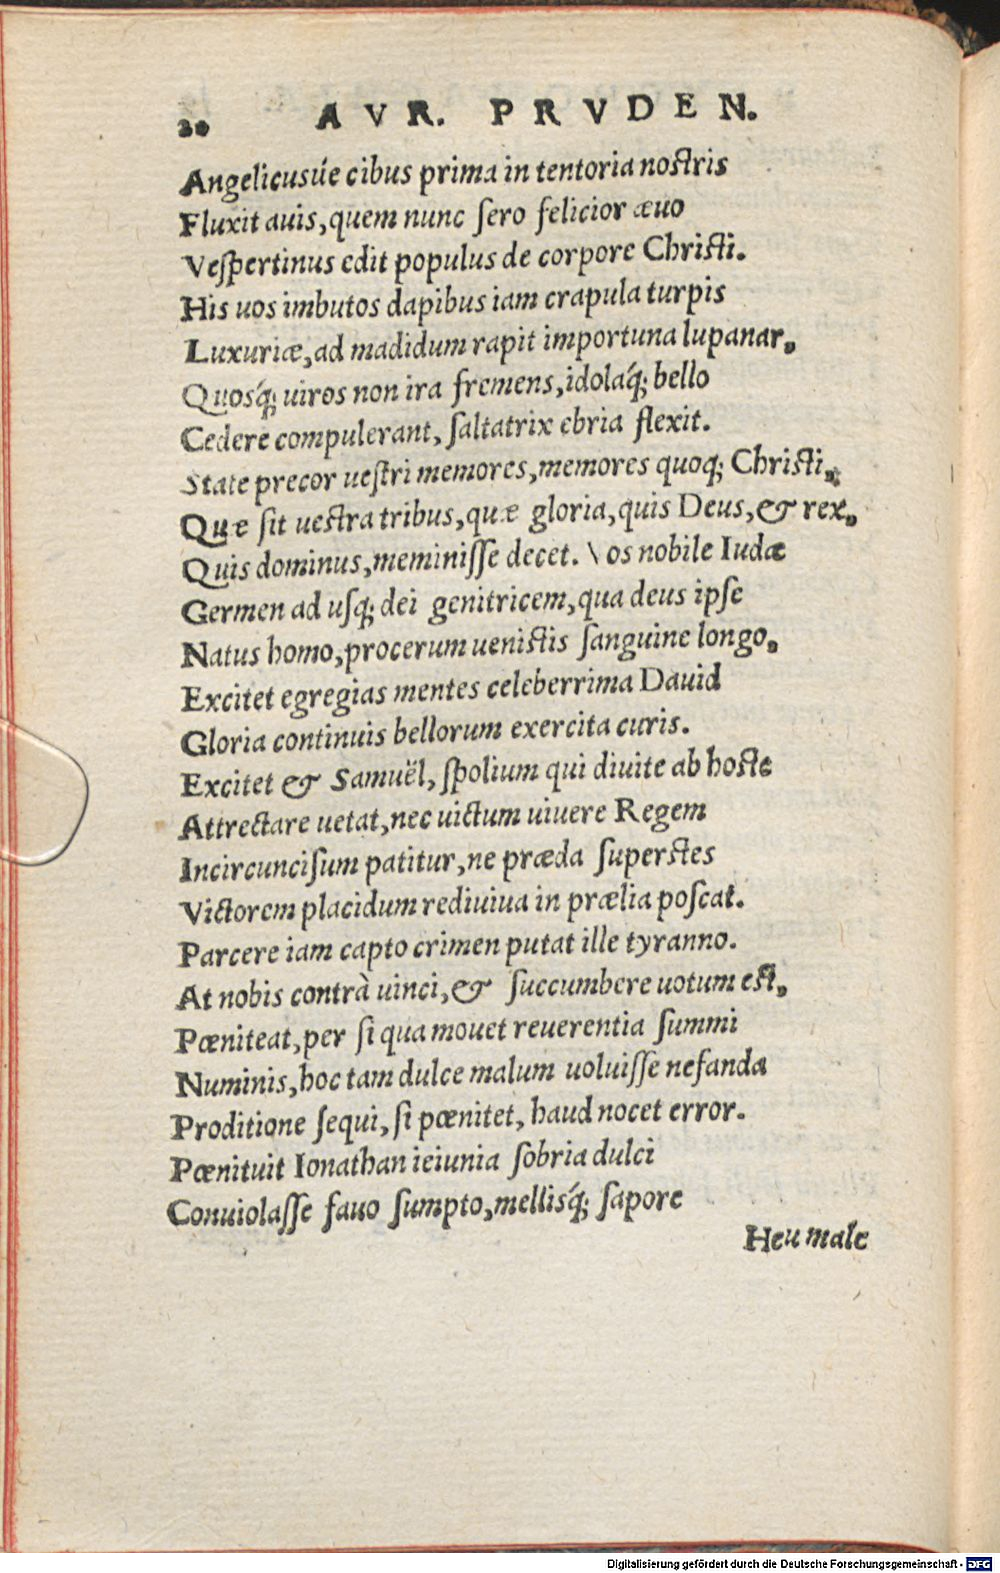 20 AVR. PRVDEN.
Angelicusúe cibus prima in tentoria nostris
Fluxit auis, quem nunc sero felicior æuo
Vespertinus edit populus de corpore Christi.
His uos imbutos dapibus iam crapula turpis
Luxuriæ, ad madidum rapit importuna lupanar,
Quosq́; uiros non ira fremens, idolaq́; bello
Cedere compulerant, saltatrix ebria flexit.
State precor uestri memores, memores quoq; Christi,
Quæ sit uestra tribus, quæ gloria, quis Deus, & rex,
Quis dominus, meminisse decet. \ os nobile Iudæ
Germen ad usq; dei genitricem, qua deus ipse
Natus homo, procerum uenistis sanguine longo,
Excitet egregias mentes celeberrima Dauid
Gloria continuis bellorum exercita curis.
Excitet & Samuël, spolium qui diuite ab hoste
Attrectare uetat, nec uictum uiuere Regem
Incircuncisum patitur, ne præda superstes
Victorem placidum rediuiua in prælia poscat.
Parcere iam capto crimen putat ille tyranno.
At nobis contrà uinci, & succumbere uotum est,
Pœniteat, per si qua mouet reuerentia summi
Numinis, hoc tam dulce malum uoluisse nefanda
Proditione sequi, si pœnitet, haud nocet error.
Pœnituit Ionathan ieiunia sobria dulci
Conuiolasse fauo sumpto, mellisq́; sapore
Heu male
Digitalisierung gefördert durch die Deutsche Forschungsgemeinschaft - DFG